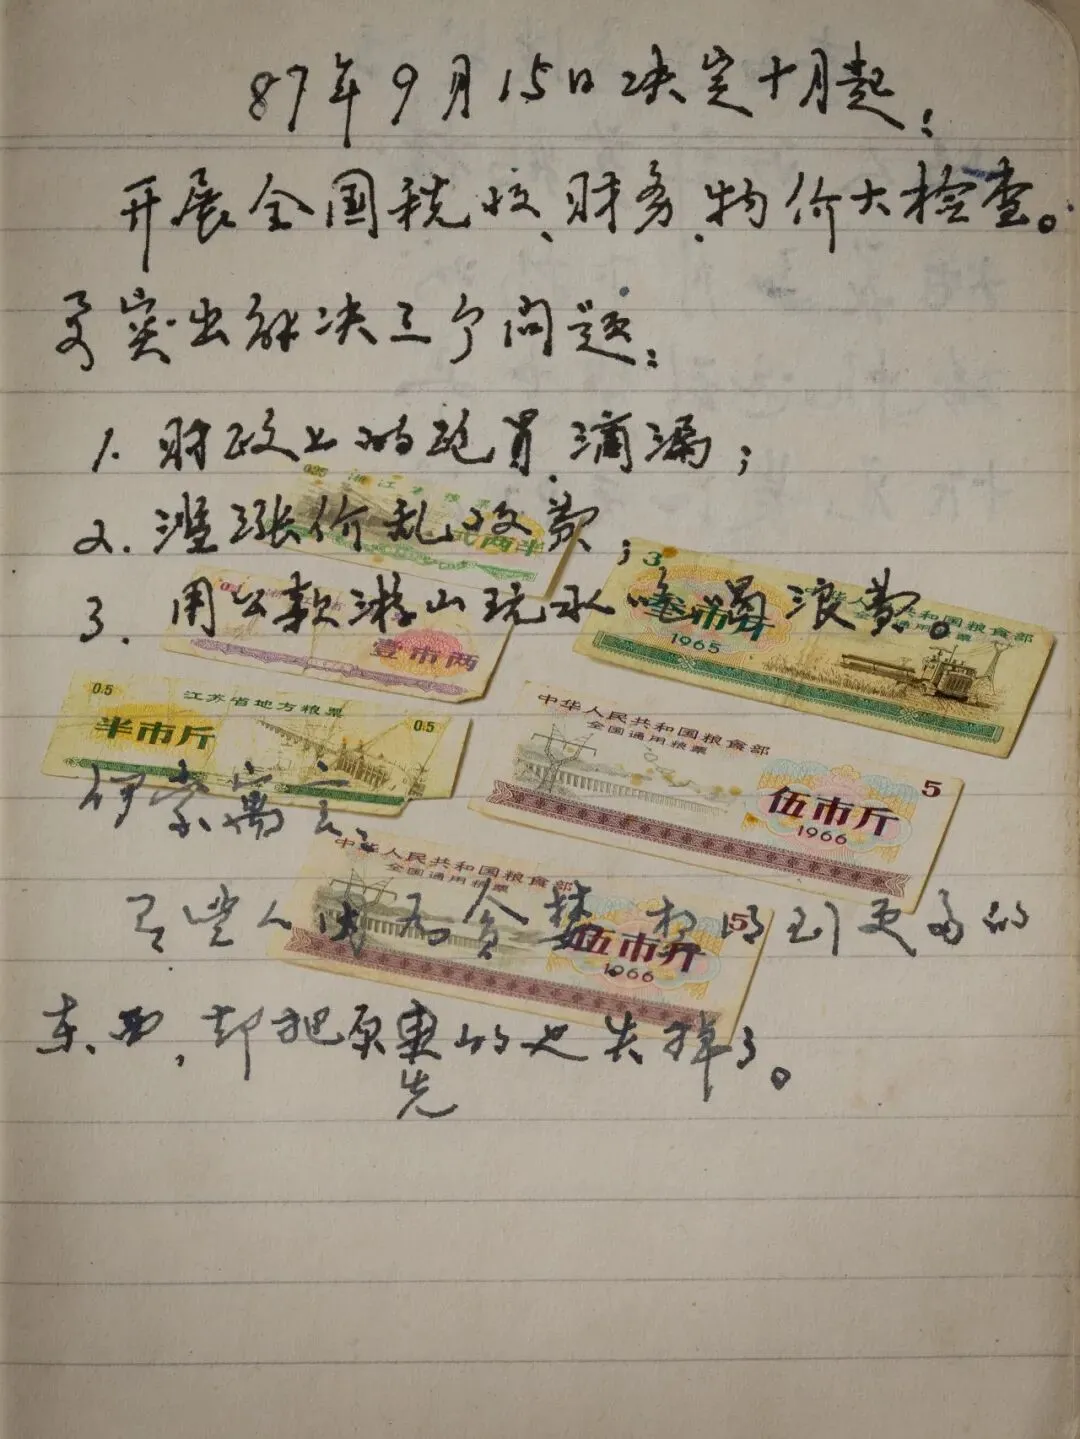 87年9月15日决定十月起:
开展全国税收、财务、物价大检查。
要突出解决三个问题:
1. 财政上的跑冒滴漏;
2. 滥涨价乱收费;
3. 用公款游山玩水吃喝浪费。
浙江省粮票
贰两半
025
壹市两
3
叁市斤
1965
中华人民共和国粮食部
全国通用粮票
0.5
江苏省地方粮票
0.5
半市斤
中华人民共和国粮食部
全国通用粮票
5
伍市斤
1966
伊索寓言。
中华人民共和国粮食部
全国通用粮票
5
伍市斤
1966
有些人因为贪婪 想得到更多的
东西,却把原来的也失掉了。
先